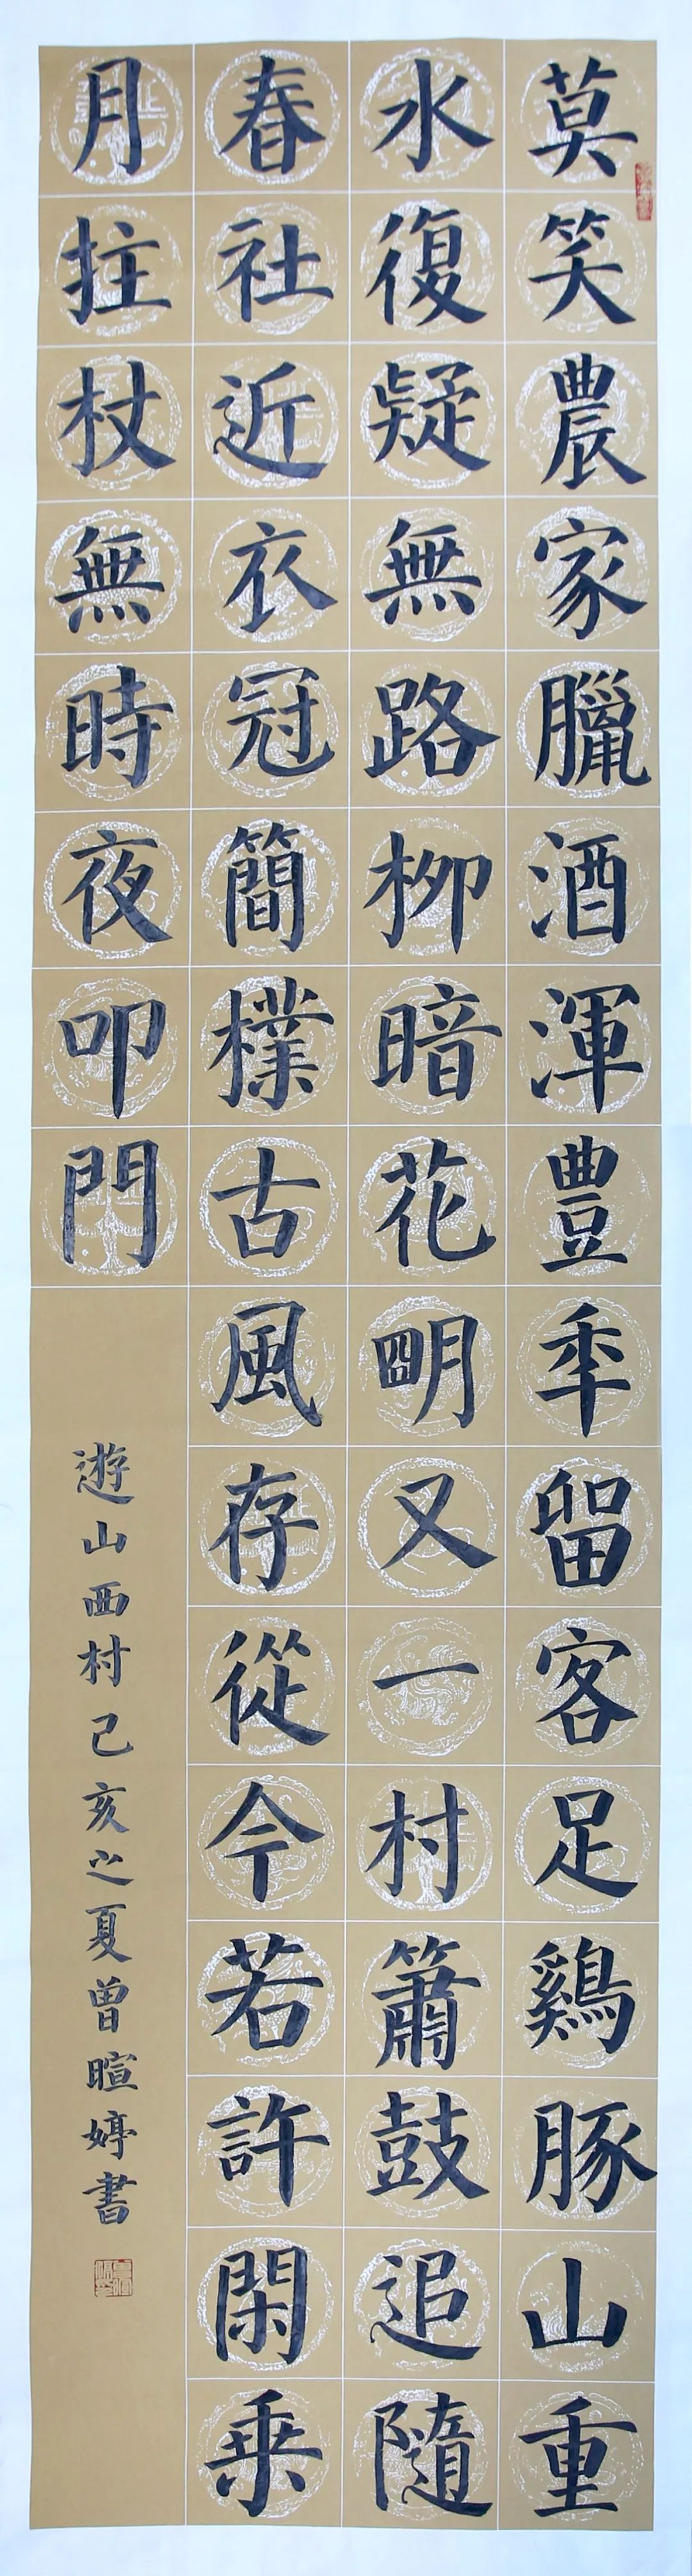 莫笑農家臘酒渾豊年留客足鷄豚山重
水復疑無路柳暗花明又一村簫鼓追隨
春社近衣冠簡樸古風存從今若許閑乗
月拄杖無時夜叩門
遊山西村己亥之夏曾暄婷書